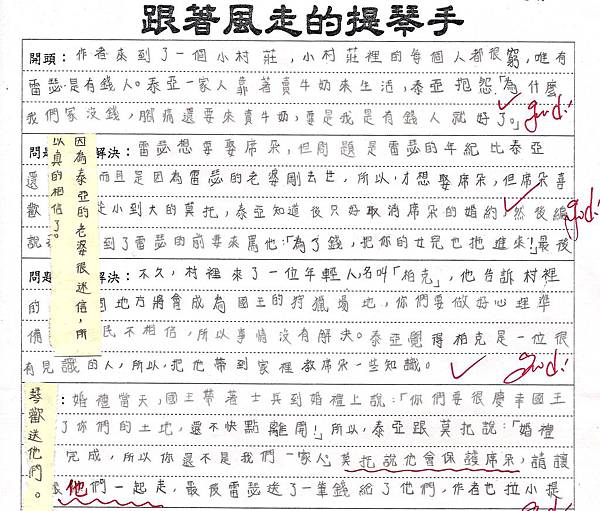 跟著風走的提琴手
開頭：作者來到了一個小村莊，小村莊裡的每個人都很窮，唯有
雷瑟是有錢人。泰亞一家人靠著賣牛奶來生活，泰亞抱怨「為什麼
我們家沒錢，腳痛還要來賣牛奶，要是我是有錢人就好了。」
good!
問題 解決：雷瑟想要娶席朵，但問題是雷瑟的年紀比泰亞
還 而且是因為雷瑟的老婆剛去世，所以，才想娶席朵，但席朵喜
歡 從小到大的莫托，泰亞知道後只好取消席朵的婚約，然後編
good!
說 到了雷瑟的前妻來罵他：「為了錢，把你的女兒也拖進來！」最後
因為泰亞的老婆很迷信，所
以真的相信了。
問題 解決：不久，村裡來了一位年輕人，名叫「柏克」，他告訴村裡
的 地方將會成為國王的狩獵場地，你們要做好心理準
備 民不相信，所以事情沒有解決。泰亞覺得柏克是一位很
有見識的人，所以，把他帶到家裡教席朵一些知識。
good!
婚禮當天，國王帶著士兵到婚禮上說：「你們要很慶幸國王
了你們的土地，還不快點離開！」所以，泰亞跟莫托說：「婚禮
完成，所以你還不是我們一家人」莫托說他會保護席朵，請讓
他們一起走，最後雷瑟送了一筆錢給了他們，作者也拉小提
琴歡送他們。